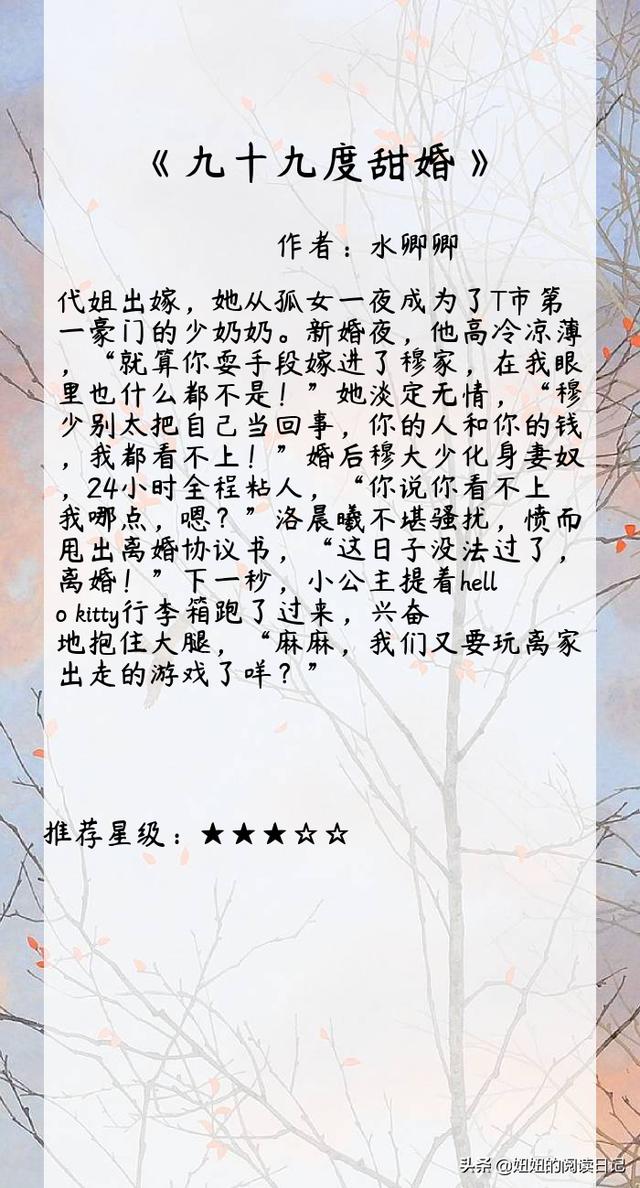 《九十九度甜婚》
作者：水卿卿
代姐出嫁，她从孤女一夜成为了T市第
一豪门的少奶奶。新婚夜，他高冷凉薄
，“就算你耍手段嫁进了穆家，在我眼
里也什么都不是！”她淡定无情，“穆
少别太把自己当回事，你的人和你的钱
，我都看不上！”婚后穆大少化身妻奴
，24小时全程粘人，“你说你看不上
我哪点，嗯？”洛晨曦不堪骚扰，愤而
甩出离婚协议书，“这日子没法过了，
离婚！”下一秒，小公主提着hell
o kitty行李箱跑了过来，兴奋
地抱住大腿，“麻麻，我们又要玩离家
出走的游戏了咩？”
推荐星级：★★★☆☆
头条 @妞妞的阅读日记